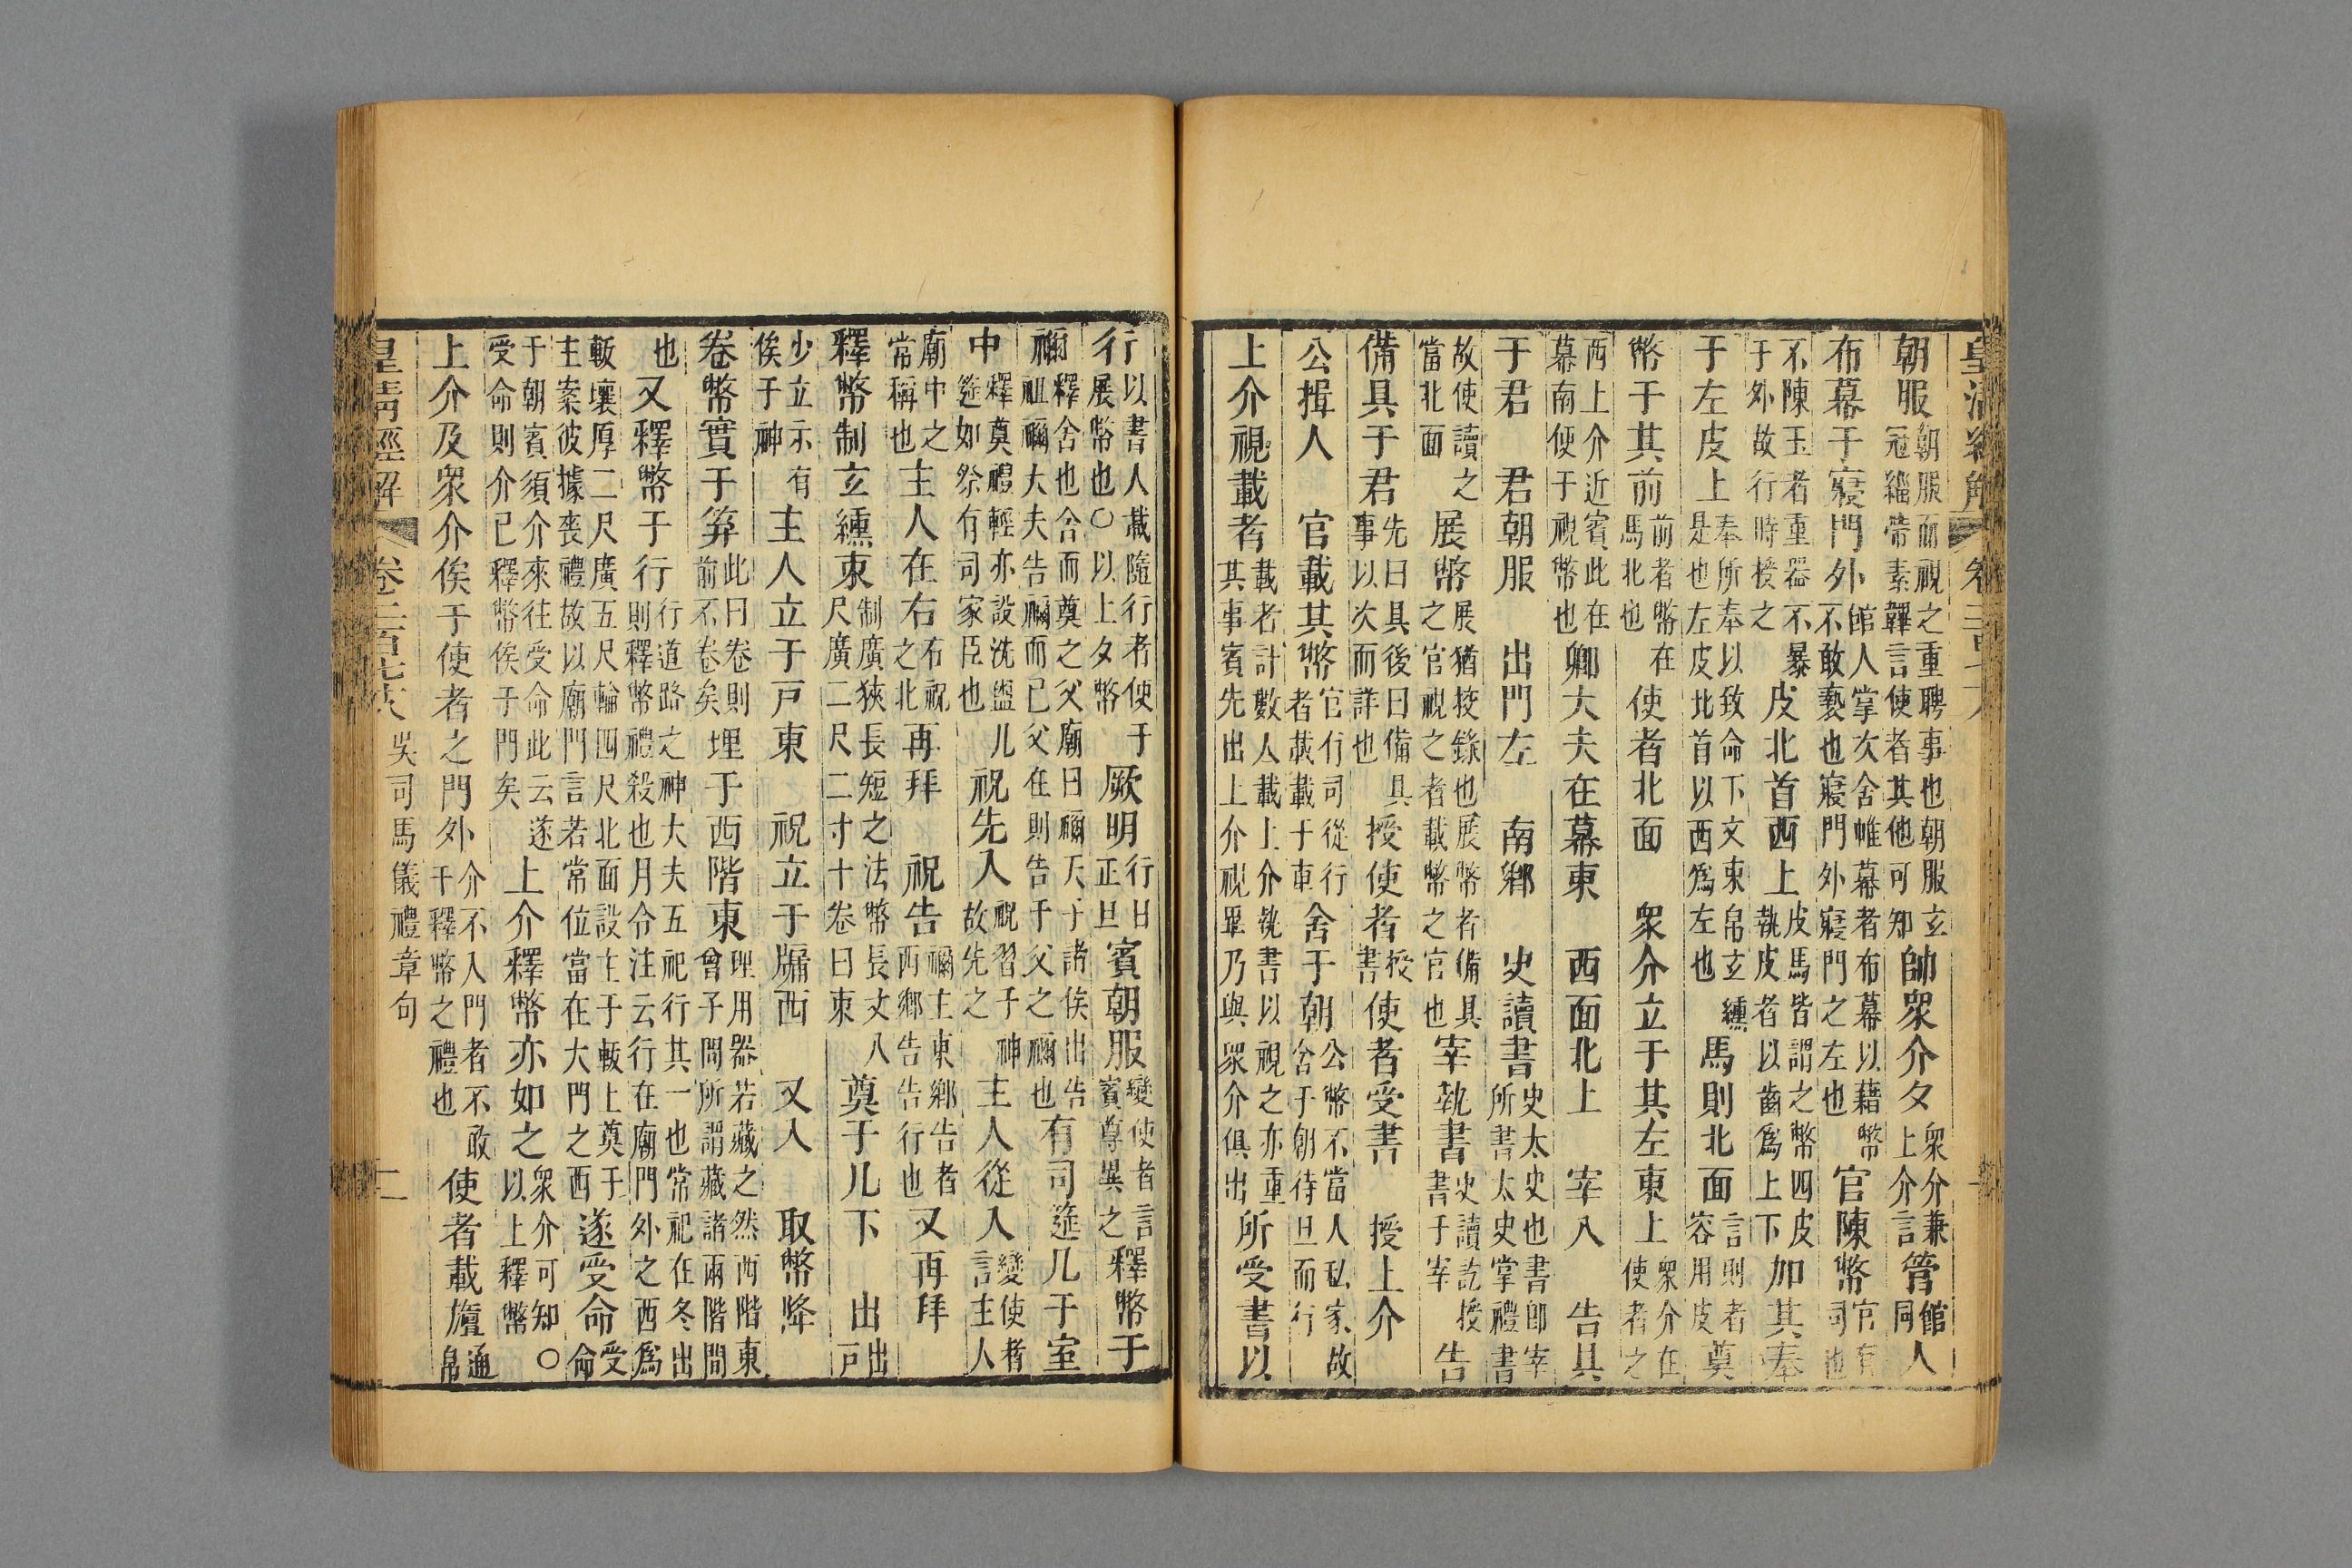 皇清經解
朝服朝服而視之重聘事也朝服玄冠緇帶素韠言使者其他可知帥衆介夕衆介兼上介言管館同人
布幕于寢門外館人掌次舍帷幕者布幕以藉幣不敢褻也寢門外寢門之左也官陳幣官有司也
不陳玉者重器不暴于外故行時授之皮北首西上皮馬皆謂之幣四皮執皮者以齒爲上下加其奉
于左皮上奉所奉以致命下文束帛玄纁是也左皮北首以西爲左也馬則北面言則者容用皮奠
幣于其前前者幣在馬北也使者北面 衆介立于其左東上衆介在使者之
西上介近賓此在幕南便于視幣也卿大夫在幕東 西面北上 宰入 告具
于君 君朝服 出門左 南鄉 史讀書史太史也書卽宰所書太史掌禮書
故使讀之當北面展幣展猶按錄也展幣者備具之官視之者載幣之官也宰執書史讀訖授書于宰告
備具于君先曰具後曰備具事以次而詳也授使者授書使者受書 授上介
公揖入 官載其幣官有司從行者載載于車舍于朝公幣不當入私家故舍于朝待旦而行
上介視載者載者計數人載上介執書以視之亦重其事賓先出上介視畢乃與衆介俱出所受書以
行以書人載隨行者使于展幣也○以上夕幣厥明行日正旦賓朝服變使者言賓尊異之釋幣于
禰釋舍也舍而奠之父廟曰禰天子諸侯出告祖禰大夫告禰而已父在則告于父之禰也有司筵几于室
中釋奠禮輕亦設洗盥几筵如祭有司家臣也祝先入祝習于神故先之主人從入變使者言主人
廟中之常稱也主人在右右祝之北再拜 祝告禰主東鄉告者西鄉告告行也又再拜
釋幣制玄纁束制廣狹長短之法幣長丈八尺廣二尺二寸十卷曰束奠于几下 出出戸
少立示有俟于神主人立于戸東 祝立于牖西 又入 取幣降
卷幣實于笲此曰卷則前不卷矣埋于西階東埋用器若藏之然西階東曾子問所謂藏諸兩階間
也又釋幣于行行道路之神大夫五祀行其一也常祀在冬出則釋幣禮殺也月令注云行在廟門外之西爲
軷壤厚二尺廣五尺輪四尺北面設主于軷上奠于主案彼據喪禮故以廟門言若常位當在大門之西遂受命受命
于朝賓須介來往受命此云遂受命則介已釋幣俟于門矣上介釋幣亦如之衆介可知○以上釋幣
上介及衆介俟于使者之門外介不入門者不敢干釋幣之禮也使者載旜通帛
皇清經解 卷二百七十八 吳司馬儀禮章句 二